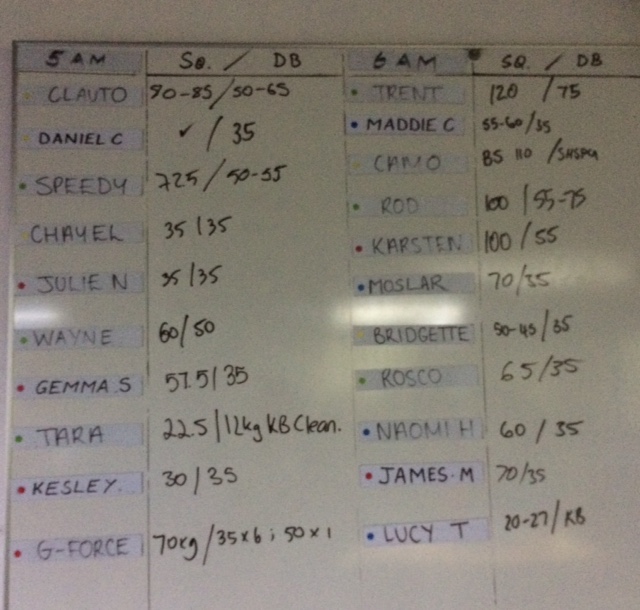 5 AM SQ. / DB 6 AM SQ. / DB
CLAUTO 90-85/50-65 TRENT 120 /75
DANIEL C ✓ / 35 MADDIE C 55-60/35
SPEEDY 72.5 / 50-55 CAMO 85 110 /
CHAYEL 35 / 35 ROD 100 / 55-75
JULIE N 35 / 35 KARSTEN 100 / 55
WAYNE 60/50 MOSLAR 70/35
GEMMA S 57.5 / 35 BRIDGETTE 50-45 / 35
TARA 22.5 / 12kg KB Clean. ROSCO 65/35
KESLEY. 30 / 35 NAOMI H 60 / 35
G-FORCE 70kg / 35x6 ; 50x1 JAMES.M 70/35
LUCY T 20-27 / KB